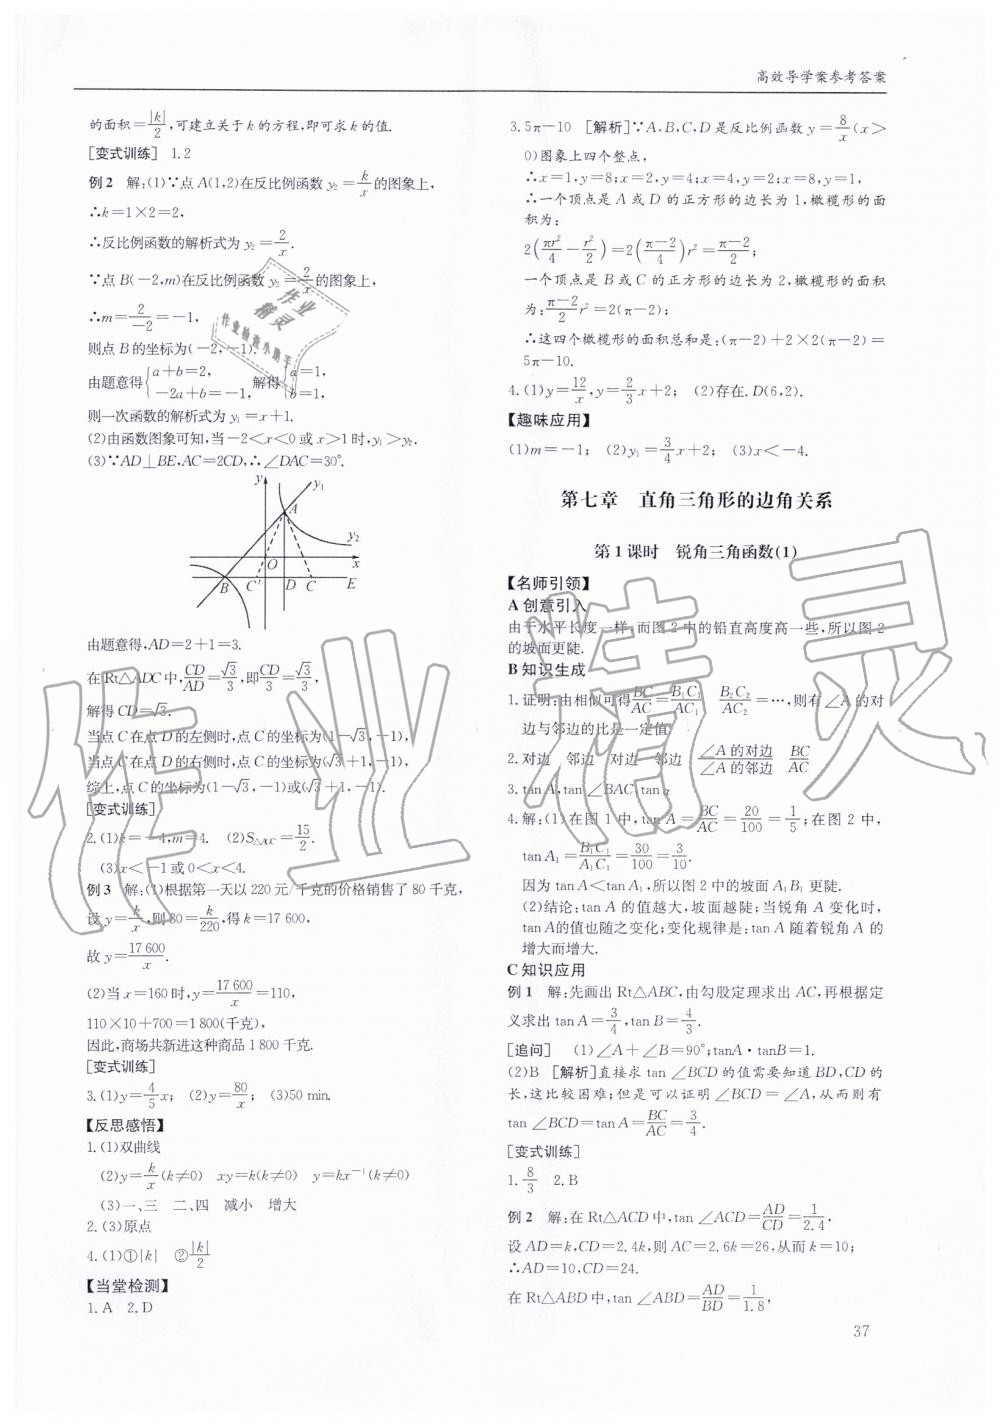 高效导学案参考答案
的面积=|k|/2,可建立关于k的方程,即可求k的值.
[变式训练] 1.2
例2 解:(1)∵点A(1,2)在反比例函数y₂=k/x的图象上,
∴k=1×2=2,
∴反比例函数的解析式为y₂=2/x.
∵点B(-2,m)在反比例函数y₂=2/x的图象上,
∴m=2/-2=-1,
则点B的坐标为(-2,-1).
由题意得{a+b=2, -2a+b=-1, 解得{a=1, b=1,
则一次函数的解析式为y₁=x+1.
(2)由函数图象可知,当-2<x<0或x>1时,y₁>y₂.
(3)∵AD⊥BE,AC=2CD,∴∠DAC=30°.
y y₁
A
y₂
O x
B C′ D C E
由题意得,AD=2+1=3.
在Rt△ADC中,CD/AD=√3/3,即CD/3=√3/3,
解得CD=√3.
当点C在点D的左侧时,点C的坐标为(1-√3,-1),
当点C在点D的右侧时,点C的坐标为(√3+1,-1),
综上,点C的坐标为(1-√3,-1)或(√3+1,-1).
[变式训练]
2.(1)k=-4,m=4. (2)S△AOC=15/2.
(3)x<-1或0<x<4.
例3 解:(1)根据第一天以220元/千克的价格销售了80千克,
设y=k/x,则80=k/220,得k=17 600,
故y=17 600/x.
(2)当x=160时,y=17 600/x=110,
110×10+700=1 800(千克),
因此,商场共新进这种商品1 800千克.
[变式训练]
3.(1)y=4/5x; (2)y=80/x; (3)50 min.
【反思感悟】
1.(1)双曲线
(2)y=k/x(k≠0) xy=k(k≠0) y=kx⁻¹(k≠0)
(3)一、三 二、四 减小 增大
2.(3)原点
4.(1)①|k| ②|k|/2
【当堂检测】
1.A 2.D
3.5π-10 [解析]∵A,B,C,D是反比例函数y=8/x(x>
0)图象上四个整点,
∴x=1,y=8;x=2,y=4;x=4,y=2;x=8,y=1,
∴一个顶点是A或D的正方形的边长为1,橄榄形的面
积为:
2(πr²/4-r²/2)=2(π-2/4)r²=π-2/2;
一个顶点是B或C的正方形的边长为2,橄榄形的面积
为:π-2/2r²=2(π-2);
∴这四个橄榄形的面积总和是:(π-2)+2×2(π-2)=
5π-10.
4.(1)y=12/x,y=2/3x+2; (2)存在.D(6,2).
【趣味应用】
(1)m=-1; (2)y₁=3/4x+2; (3)x<-4.
第七章 直角三角形的边角关系
第1课时 锐角三角函数(1)
【名师引领】
A 创意引入
由于水平长度一样,而图2中的铅直高度高一些,所以图2
的坡面更陡.
B 知识生成
1.证明:由相似可得BC/AC=B₁C₁/AC₁ B₂C₂/AC₂=…,则有∠A的对
边与邻边的比是一定值.
2.对边 邻边 对边 邻边 ∠A的对边/∠A的邻边 BC/AC
3.tan A,tan ∠BAC,tan α
4.解:(1)在图1中,tan A=BC/AC=20/100=1/5;在图2中,
tan A₁=B₁C₁/A₁C₁=30/100=3/10.
因为tan A<tan A₁,所以图2中的坡面A₁B₁更陡.
(2)结论:tan A的值越大,坡面越陡;当锐角A变化时,
tan A的值也随之变化;变化规律是:tan A随着锐角A的
增大而增大.
C 知识应用
例1 解:先画出Rt△ABC,由勾股定理求出AC,再根据定
义求出tan A=3/4,tan B=4/3.
[追问] (1)∠A+∠B=90°;tanA·tanB=1.
(2)B [解析]直接求tan∠BCD的值需要知道BD,CD的
长,这比较困难;但是可以证明∠BCD=∠A,从而有
tan∠BCD=tan A=BC/AC=3/4.
[变式训练]
1.8/3 2.B
例2 解:在Rt△ACD中,tan∠ACD=AD/CD=1/2.4,
设AD=k,CD=2.4k,则AC=2.6k=26,从而k=10;
∴AD=10,CD=24.
在Rt△ABD中,tan∠ABD=AD/BD=1/1.8,
37
作业精灵
作业
精灵
作业检查小助手